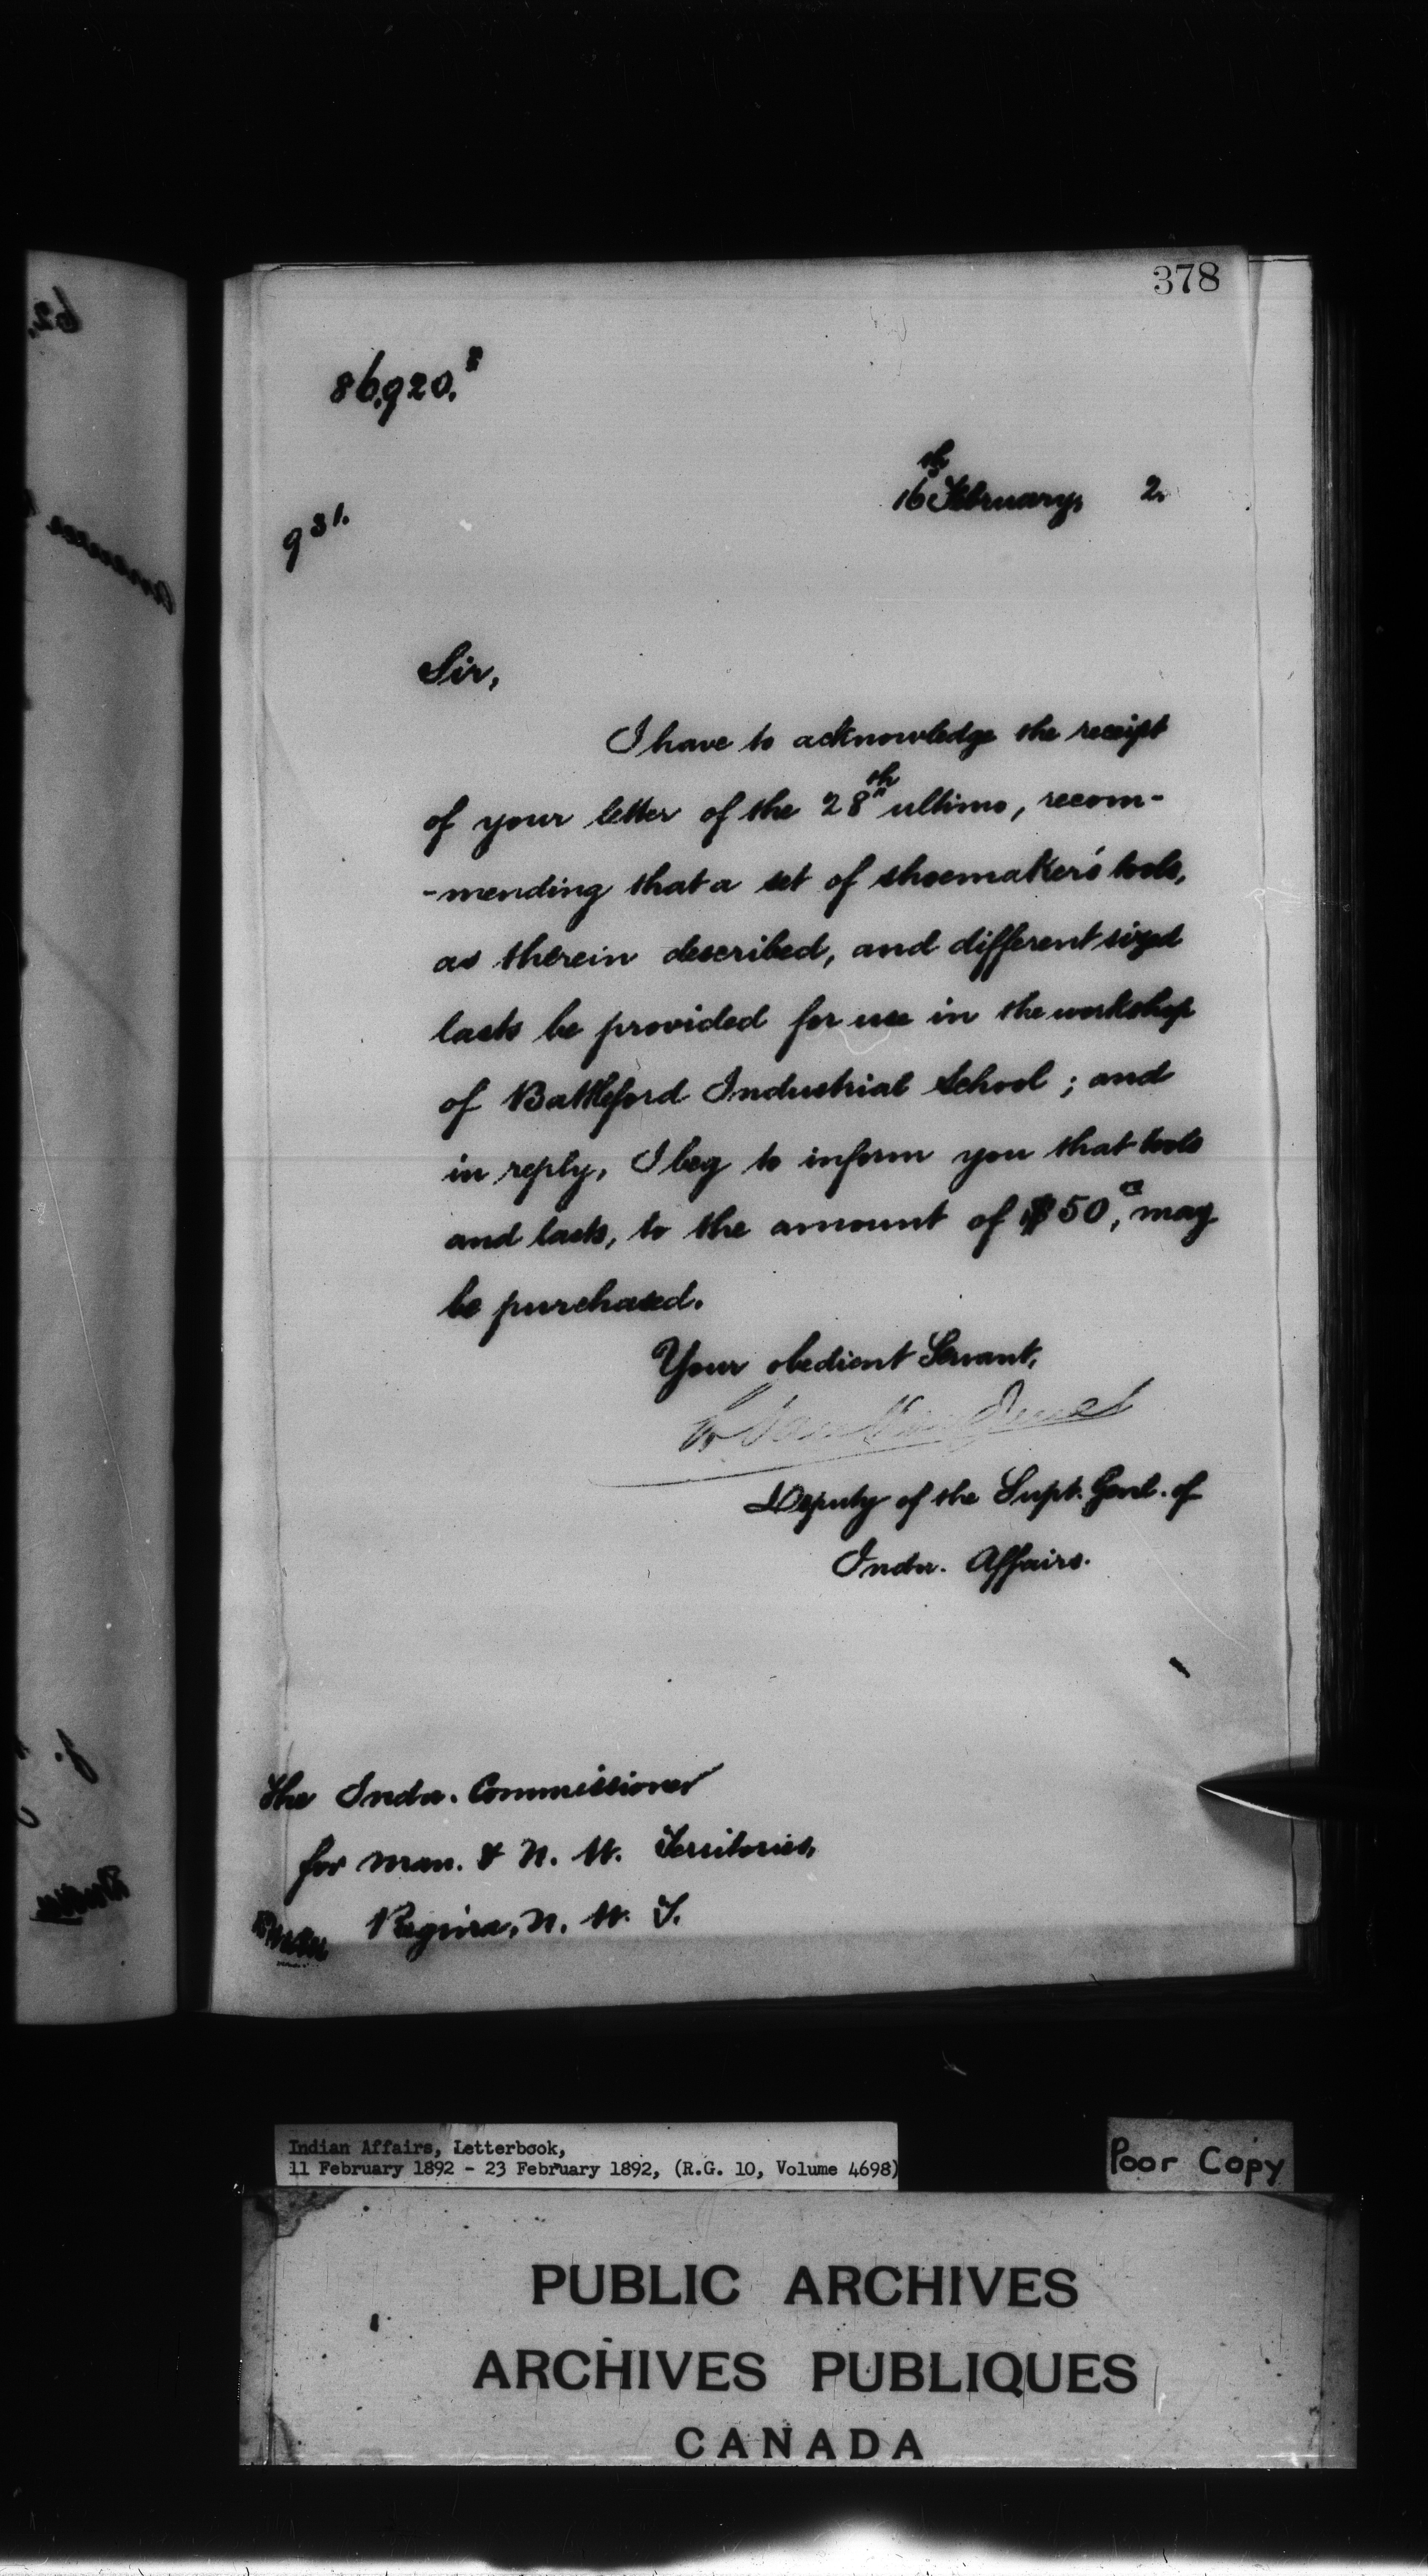 378
86,920.
931.
16th February, 2.
Sir,
I have to acknowledge the receipt
of your letter of the 28th ultimo, recom-
-mending that a set of shoemaker's tools,
as therein described, and different sized
lasts be provided for use in the workshop
of Battleford Industrial School; and
in reply, I beg to inform you that tools
and lasts, to the amount of $50, may
be purchased.
Your obedient Servant,
Deputy of the Supt. Genl. of
Indn. Affairs.
The Indn. Commissioner
for Man. & N. W. Territories,
Regina, N. W. T.
Indian Affairs, Letterbook,
11 February 1892 - 23 February 1892, (R.G. 10, Volume 4698)
Poor Copy
PUBLIC ARCHIVES
ARCHIVES PUBLIQUES
CANADA